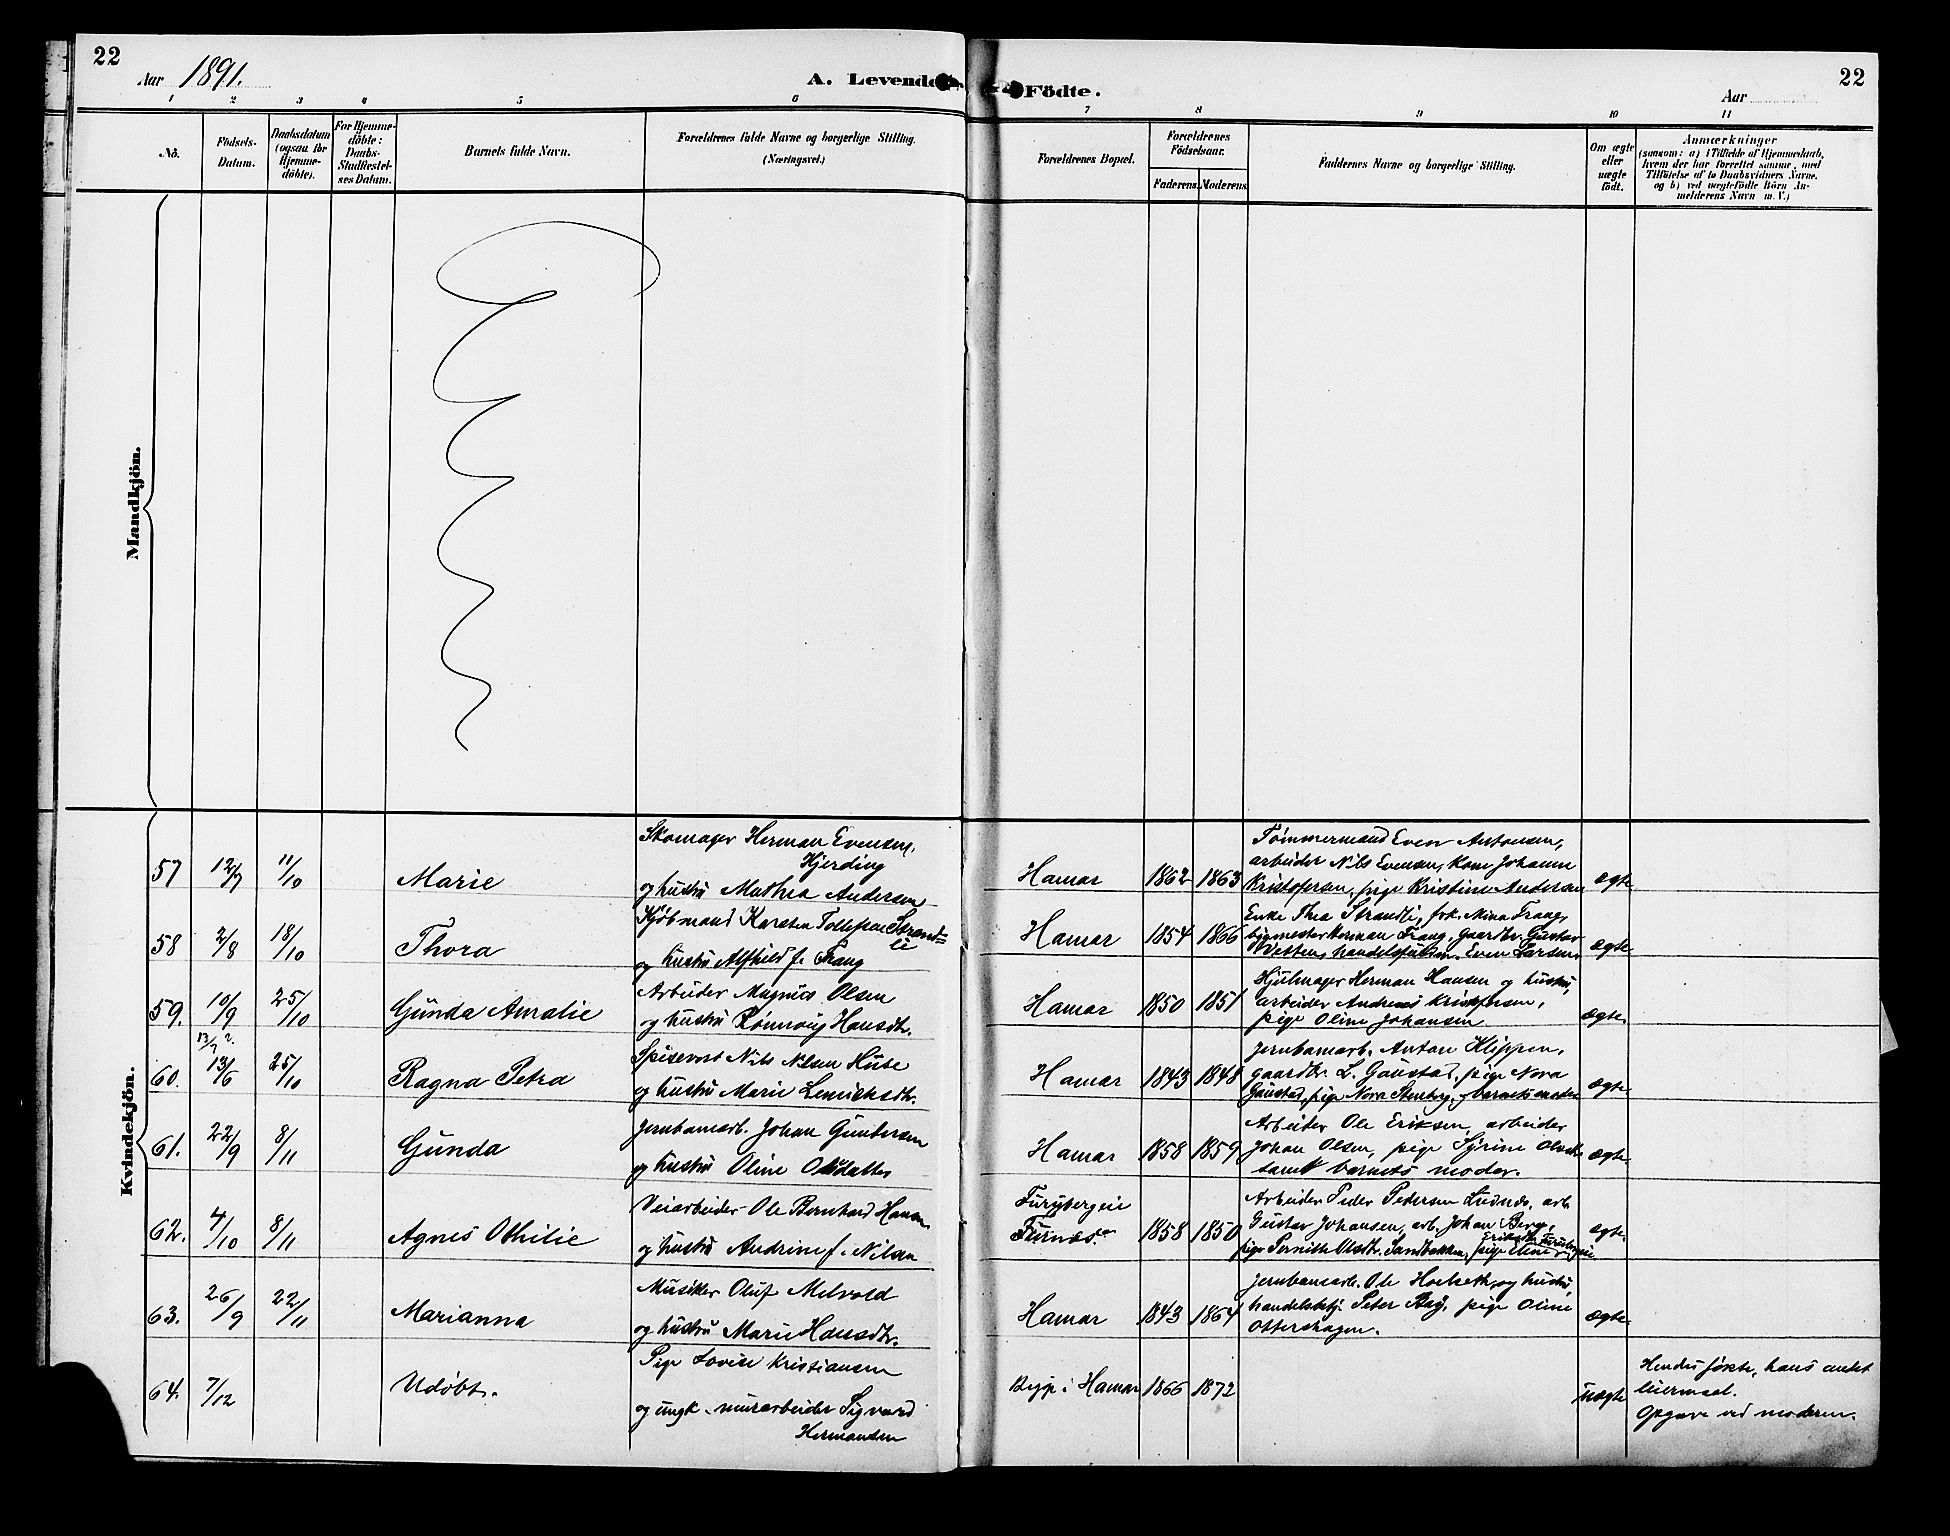 22
Aar 1891.
A. Levende
Födte.
Aar
22
1 2 3 4 5 6 7 8 9 10 11
Nô.
Födsels-
Datum.
Daabsdatum
(ogsaa for
Hjemme-
döbte).
For Hjemme-
döbte:
Daabs-
Stadfæstel-
ses Datum.
Barnets fulde Navn.
Forældrenes fulde Navne og borgerlige Stilling.
(Næringsvei.)
Forældrenes Bopæl.
Forældrenes
Födselsaar.
Faderens. Moderens.
Faddernes Navne og borgerlige Stilling.
Om ægte
eller
uægte
födt.
Anmærkninger
(saasom: a) i Tilfælde af Hjemmedaab,
hvem der har forrettet samme, med
Tilföielse af to Daabsvidners Navne.
og b) ved uægtefödte Börn An-
melderens Navn m. V.)
Mandkjön.
Kvindekjön.
57 12/7 11/10 Marie
Skomager Herman Evensen
Hjerding
og hustru Mathea Andersen
Hamar 1862 1863
Tömmermand Even Antonsen,
arbeider Nils Evensen, kone Johanne
Kristofersen, pige Kristine Andersen
ægte
58 2/8 18/10 Thora
Kjöbmand Karsten Tollefsen Strand=
lie
og hustru Alfhild f. Frang
Hamar 1854 1866
Enke Thea Strandli, frk. Mina Frang,
bygmester Herman Frang, gaardbr. Gustav
Even Larsen
ægte
59. 10/9 25/10 Gunda Amalie
Arbeider Magnus Olsen
og hustru Rönnoug Hansdtr.
Hamar 1850 1851
Hjulmager Herman Hansen og hustru,
arbeider Andreas Kristofersen,
pige Oline Johansen
ægte.
13/7 ?
60. 13/6 25/10 Ragna Petra
Spisevert Nils Nilsen Huse
og hustru Marie
Hamar 1843 1848
Jernbanearb. Anton Klippen,
gaardbr. L. Gaustad, pige Nora
Gaustad, pige Nora Stenberg, og barnets moder
ægte
61. 22/9 8/11 Gunda
Jernbanearb. Johan Gundersen
og hustru Oline Olsdatter
Hamar 1858 1859
Arbeider Ole Eriksen, arbeider
Johan Olsen, pige Syrine Olsen
samt barnets moder.
ægte.
62. 4/10 8/11 Agnes Othilie
Veiarbeider Ole Bernhard Hansen
og hustru Andrine f. Nilsen
Furubergeie
Furnes. 1858 1850
Arbeider Peder Pedersen Lundnæs, arb.
Gustav Johansen, arb. Johan Berge,
pige Pernille Olsdtr. Sandbakken, pige Eline
ægte.
63. 26/9 22/11 Marianna
Musiker Oluf Melvold
og hustru Marie Hansdtr.
Hamar 1843 1864
Jernbanearb. Ole Holseth og hustru,
handelsbetj. Peter Aas, pige Oline
Otterskogen.
ægte.
64. 7/12 Udöbt.
Pige Lovise Kristiansen
og ungk. murarbeider Sigvard
Hermansen
Begge i Hamar 1866 1872
uægte
Hendes förste, hans andet
leiermaal.
Opgave ved moderen.